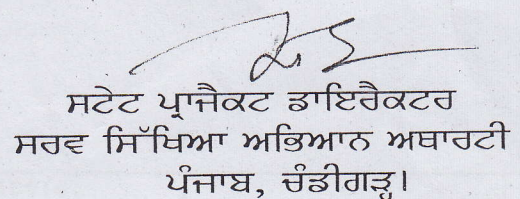 ਸਟੇਟ ਪ੍ਰਾਜੈਕਟ ਡਾਇਰੈਕਟਰ
ਸਰਵ ਸਿੱਖਿਆ ਅਭਿਆਨ ਅਥਾਰਟੀ
ਪੰਜਾਬ, ਚੰਡੀਗੜ੍ਹ।